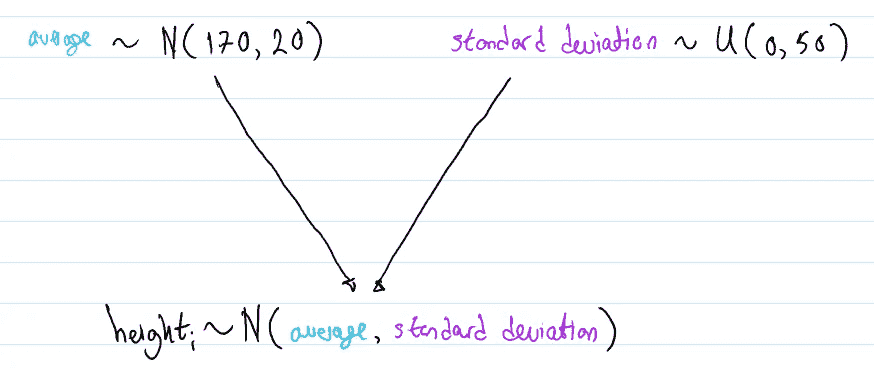 average ~ N(170, 20)
standard deviation ~ U(0, 50)
heightᵢ ~ N(average, standard deviation)